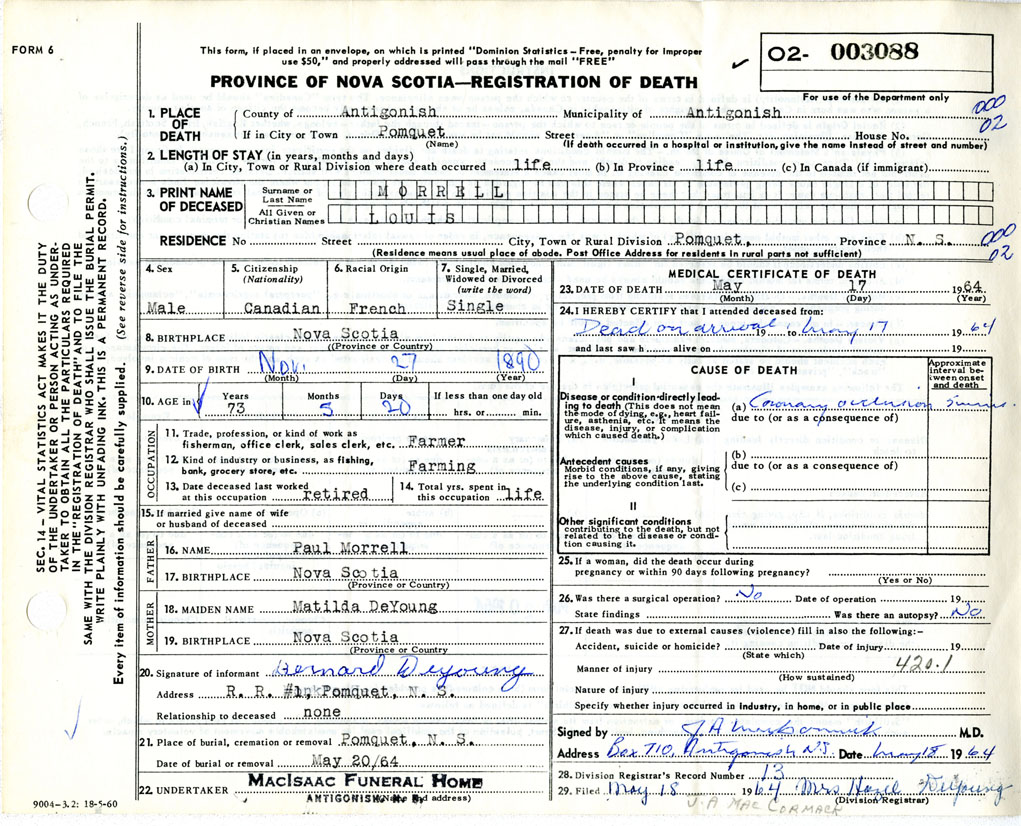 FORM 6
This form, if placed in an envelope, on which is printed "Dominion Statistics – Free, penalty for improper
use $50," and properly addressed will pass through the mail "FREE"
PROVINCE OF NOVA SCOTIA—REGISTRATION OF DEATH
02- 003088
For use of the Department only
000
02
1. PLACE OF DEATH
County of Antigonish Municipality of Antigonish
If in City or Town Pomquet Street House No.
(Name) (If death occurred in a hospital or institution, give the name instead of street and number)
2. LENGTH OF STAY (in years, months and days)
(a) In City, Town or Rural Division where death occurred life (b) In Province life (c) In Canada (if immigrant)
3. PRINT NAME OF DECEASED
Surname or Last Name MORRELL
All Given or Christian Names LOUIS
RESIDENCE No Street City, Town or Rural Division Pomquet, Province N. S.
(Residence means usual place of abode. Post Office Address for residents in rural parts not sufficient)
000
02
SEC. 14 – VITAL STATISTICS ACT MAKES IT THE DUTY
OF THE UNDERTAKER OR PERSON ACTING AS UNDER-
TAKER TO OBTAIN ALL THE PARTICULARS REQUIRED
IN THE "REGISTRATION OF DEATH" AND TO FILE THE
SAME WITH THE DIVISION REGISTRAR WHO SHALL ISSUE THE BURIAL PERMIT.
WRITE PLAINLY WITH UNFADING INK. THIS IS A PERMANENT RECORD.
Every item of information should be carefully supplied. (See reverse side for instructions.)
4. Sex
Male
5. Citizenship
(Nationality)
Canadian
6. Racial Origin
French
7. Single, Married,
Widowed or Divorced
(write the word)
Single
8. BIRTHPLACE Nova Scotia
((Province or Country)
9. DATE OF BIRTH Nov. 27 1890
(Month) (Day) (Year)
10. AGE in
Years Months Days If less than one day old
73 5 20 hrs. or min.
OCCUPATION
11. Trade, profession, or kind of work as
fisherman, office clerk, sales clerk, etc. Farmer
12. Kind of industry or business, as fishing,
bank, grocery store, etc. Farming
13. Date deceased last worked
at this occupation retired
14. Total yrs. spent in
this occupation life
15. If married give name of wife
or husband of deceased
FATHER
16. NAME Paul Morrell
17. BIRTHPLACE Nova Scotia
(Province or Country)
MOTHER
18. MAIDEN NAME Matilda DeYoung
19. BIRTHPLACE Nova Scotia
(Province or Country
20. Signature of informant Bernard Deyoung
Address R. R. #1, Pomquet, N. S.
Relationship to deceased none
21. Place of burial, cremation or removal Pomquet, N. S.
Date of burial or removal May 20/64
22. UNDERTAKER MACISAAC FUNERAL HOME
ANTIGONISH, N. S. (Name and address)
9004–3.2: 18-5-60
MEDICAL CERTIFICATE OF DEATH
23. DATE OF DEATH May 17 1964
(Month) (Day) (Year)
24. I HEREBY CERTIFY that I attended deceased from:
Dead on arrival, May 17 19 to 1964
and last saw h alive on 19
CAUSE OF DEATH
Approximate
interval be-
tween onset
and death
I
Disease or condition directly lead-
ing to death (This does not mean
the mode of dying, e.g., heart fail-
ure, asthenia, etc. It means the
disease, injury, or complication
which caused death.)
(a) Coronary occlusion
due to (or as a consequence of)
Antecedent causes
Morbid conditions, if any, giving
rise to the above cause, stating
the underlying condition last.
(b)
due to (or as a consequence of)
(c)
II
Other significant conditions
contributing to the death, but not
related to the disease or condi-
tion causing it.
25. If a woman, did the death occur during
pregnancy or within 90 days following pregnancy?
(Yes or No)
26. Was there a surgical operation? No Date of operation 19
State findings Was there an autopsy? No
27. If death was due to external causes (violence) fill in also the following:–
Accident, suicide or homicide? Date of injury 19
(State which)
420.1
Manner of injury
(How sustained)
Nature of injury
Specify whether injury occurred in industry, in home, or in public place
Signed by J A MacCormack M.D.
Address Box 710, Antigonish N.S. Date May 18 1964
28. Division Registrar's Record Number 13
29. Filed May 18 1964 Mrs Hazel DeYoung
(Division Registrar)
J. A MAC CORMACK